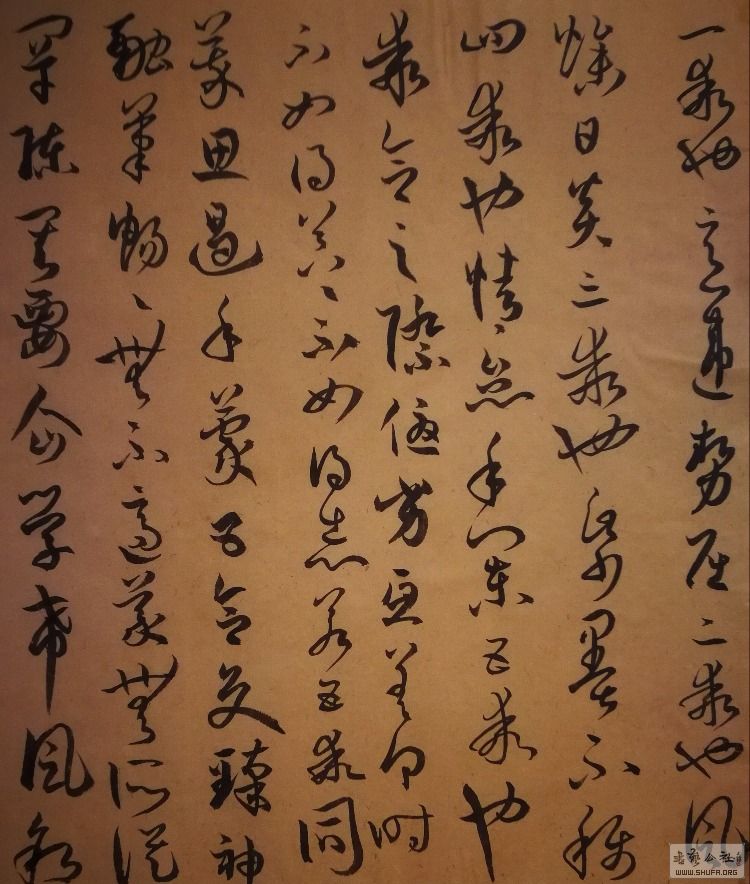 一乖也意違勢屈二乖也風
燥日炎三乖也紙墨不稱
四乖也情怠手闌五乖也
乖合之際優劣互差得時
不如得器〻不如得志若五乖同
萃思遏手蒙五合交臻神
融筆暢〻無不適蒙無所從
罕陳其要企學希風叙
WWW.SHUFA.ORG